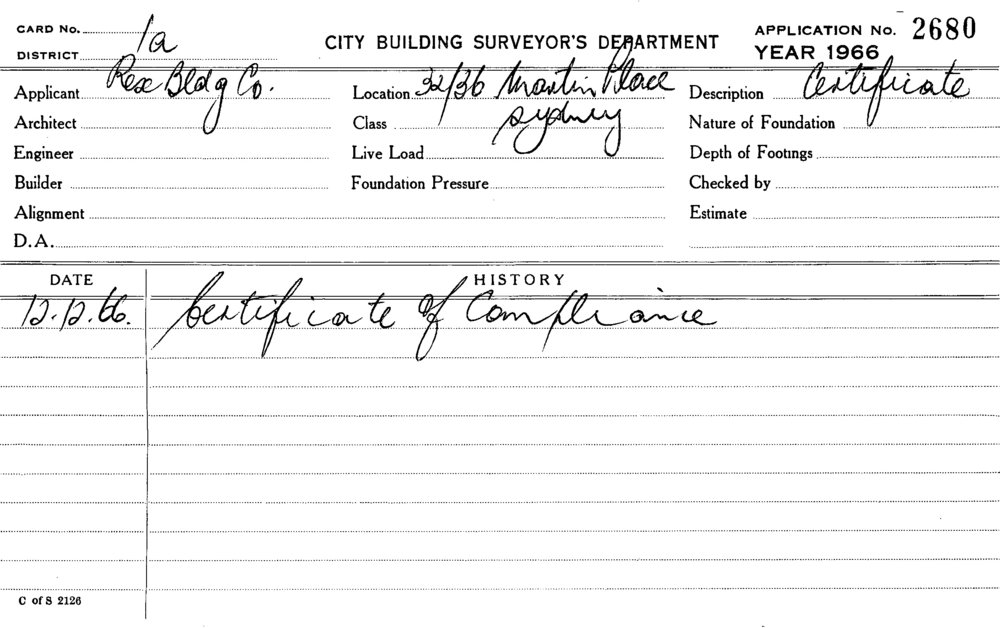 CARD No. 1a
DISTRICT
CITY BUILDING SURVEYOR'S DEPARTMENT
APPLICATION No. 2680
YEAR 1966
Applicant Rex Bldg Co. Location 32/36 Martin Place Description Certificate
Architect Class Sydney Nature of Foundation
Engineer Live Load Depth of Footings
Builder Foundation Pressure Checked by
Alignment Estimate
D.A.
DATE HISTORY
12.12.66. Certificate of Compliance
C of S 2126